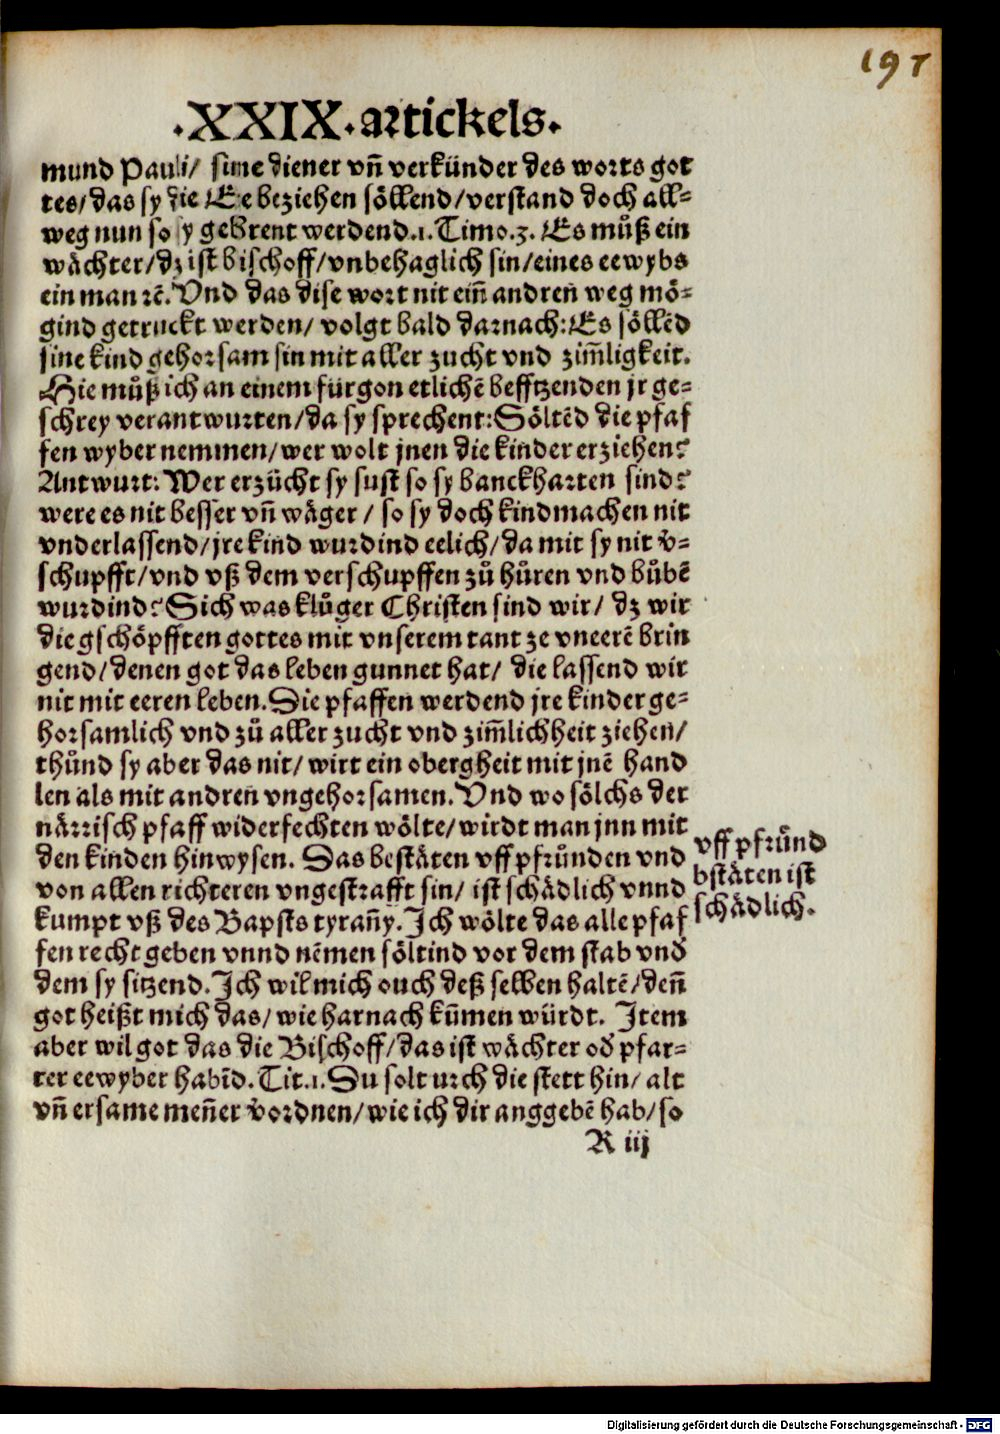 197
.XXIX.artickels.
mund Pauli/ sine diener vñ verkünder des worts got
tes/das sy die Ee beziehen söllend/verstand doch all-
weg nun so sy gebrent werdend.1. Timo.3. Es můß ein
wächter/dz ist bischoff/vnbehaglich sin/eines eewybs
ein man ꝛc̄. Vnd das dise wort nit eiñ andren weg mö-
gind getruckt werden/ volgt bald darnach: Es söllēd
sine kind gehorsam sin mit aller zucht vnd zim̄ligkeit.
Hie můß ich an einem fürgon etlichē befftzenden jr ge-
schrey verantwurten/da sy sprechent: Söltēd die pfaf
fen wyber nemmen/wer wolt jnen die kinder erziehen?
Antwurt: Wer erzücht sy sust so sy banckharten sind?
were es nit besser vñ wäger / so sy doch kindmachen nit
vnderlassend/jre kind wurdind eelich/da mit sy nit v̄-
schupfft/vnd vß dem verschupffen zů hůren vnd bůbē
wurdind? Sich was klůger Christen sind wir/ dz wir
die gschöpfften gottes mit vnserem tant ze vneerē brin
gend/denen got das leben gunnet hat/ die lassend wir
nit mit eeren leben. Die pfaffen werdend jre kinder ge-
horsamlich vnd zů aller zucht vnd zim̄lichheit ziehen/
thůnd sy aber das nit/ wirt ein obergheit mit jnē hand
len als mit andren vngehorsamen. Vnd wo sölchs der
närrisch pfaff widerfechten wölte/wirdt man jnn mit
den kinden hinwysen. Das bestäten vff pfrůnden vnd
von allen richteren vngestrafft sin/ ist schädlich vnnd
kumpt vß des Bapsts tyrañy. Ich wölte das alle pfaf
fen recht geben vnnd nēmen söltind vor dem stab vnd̄
dem sy sitzend. Ich wil mich ouch deß selben haltē/deñ
got heißt mich das/ wie harnach kūmen würdt. Item
aber wil got das die Bischoff/das ist wächter od̄ pfar-
rer eewyber habīd. Tit.1. Du solt urch die stett hin/ alt
vñ ersame meñer v̄ordnen/wie ich dir anggebē hab/so
R iij
vff pfrůnd
bstäten ist
schädlich.
Digitalisierung gefördert durch die Deutsche Forschungsgemeinschaft - DFG